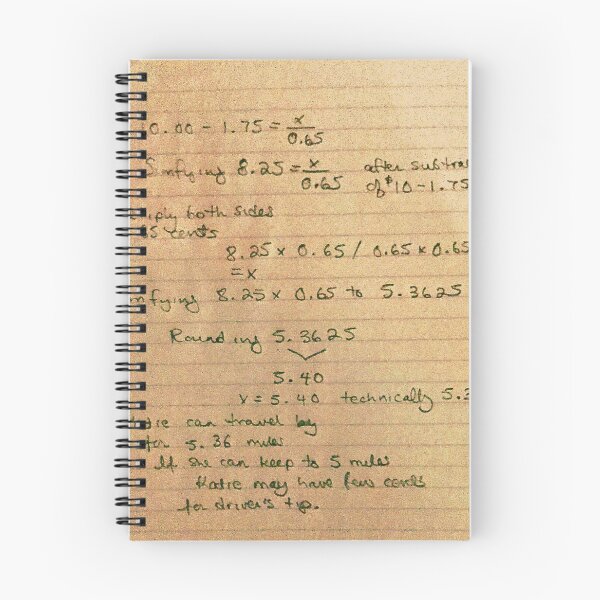 0.00 - 1.75 = x/0.65
Simfying 8.25 = x/0.65 after subtra
of $10 - 1.75
iply both sides
65 cents
8.25 x 0.65 / 0.65 x 0.65
= x
mfying 8.25 x 0.65 to 5.3625
Rounding 5.3625
5.40
x = 5.40 technically 5.3
can travel by
for 5.36 miles
If she can keep to 5 miles
Katie may have few cents
for driver's tip.